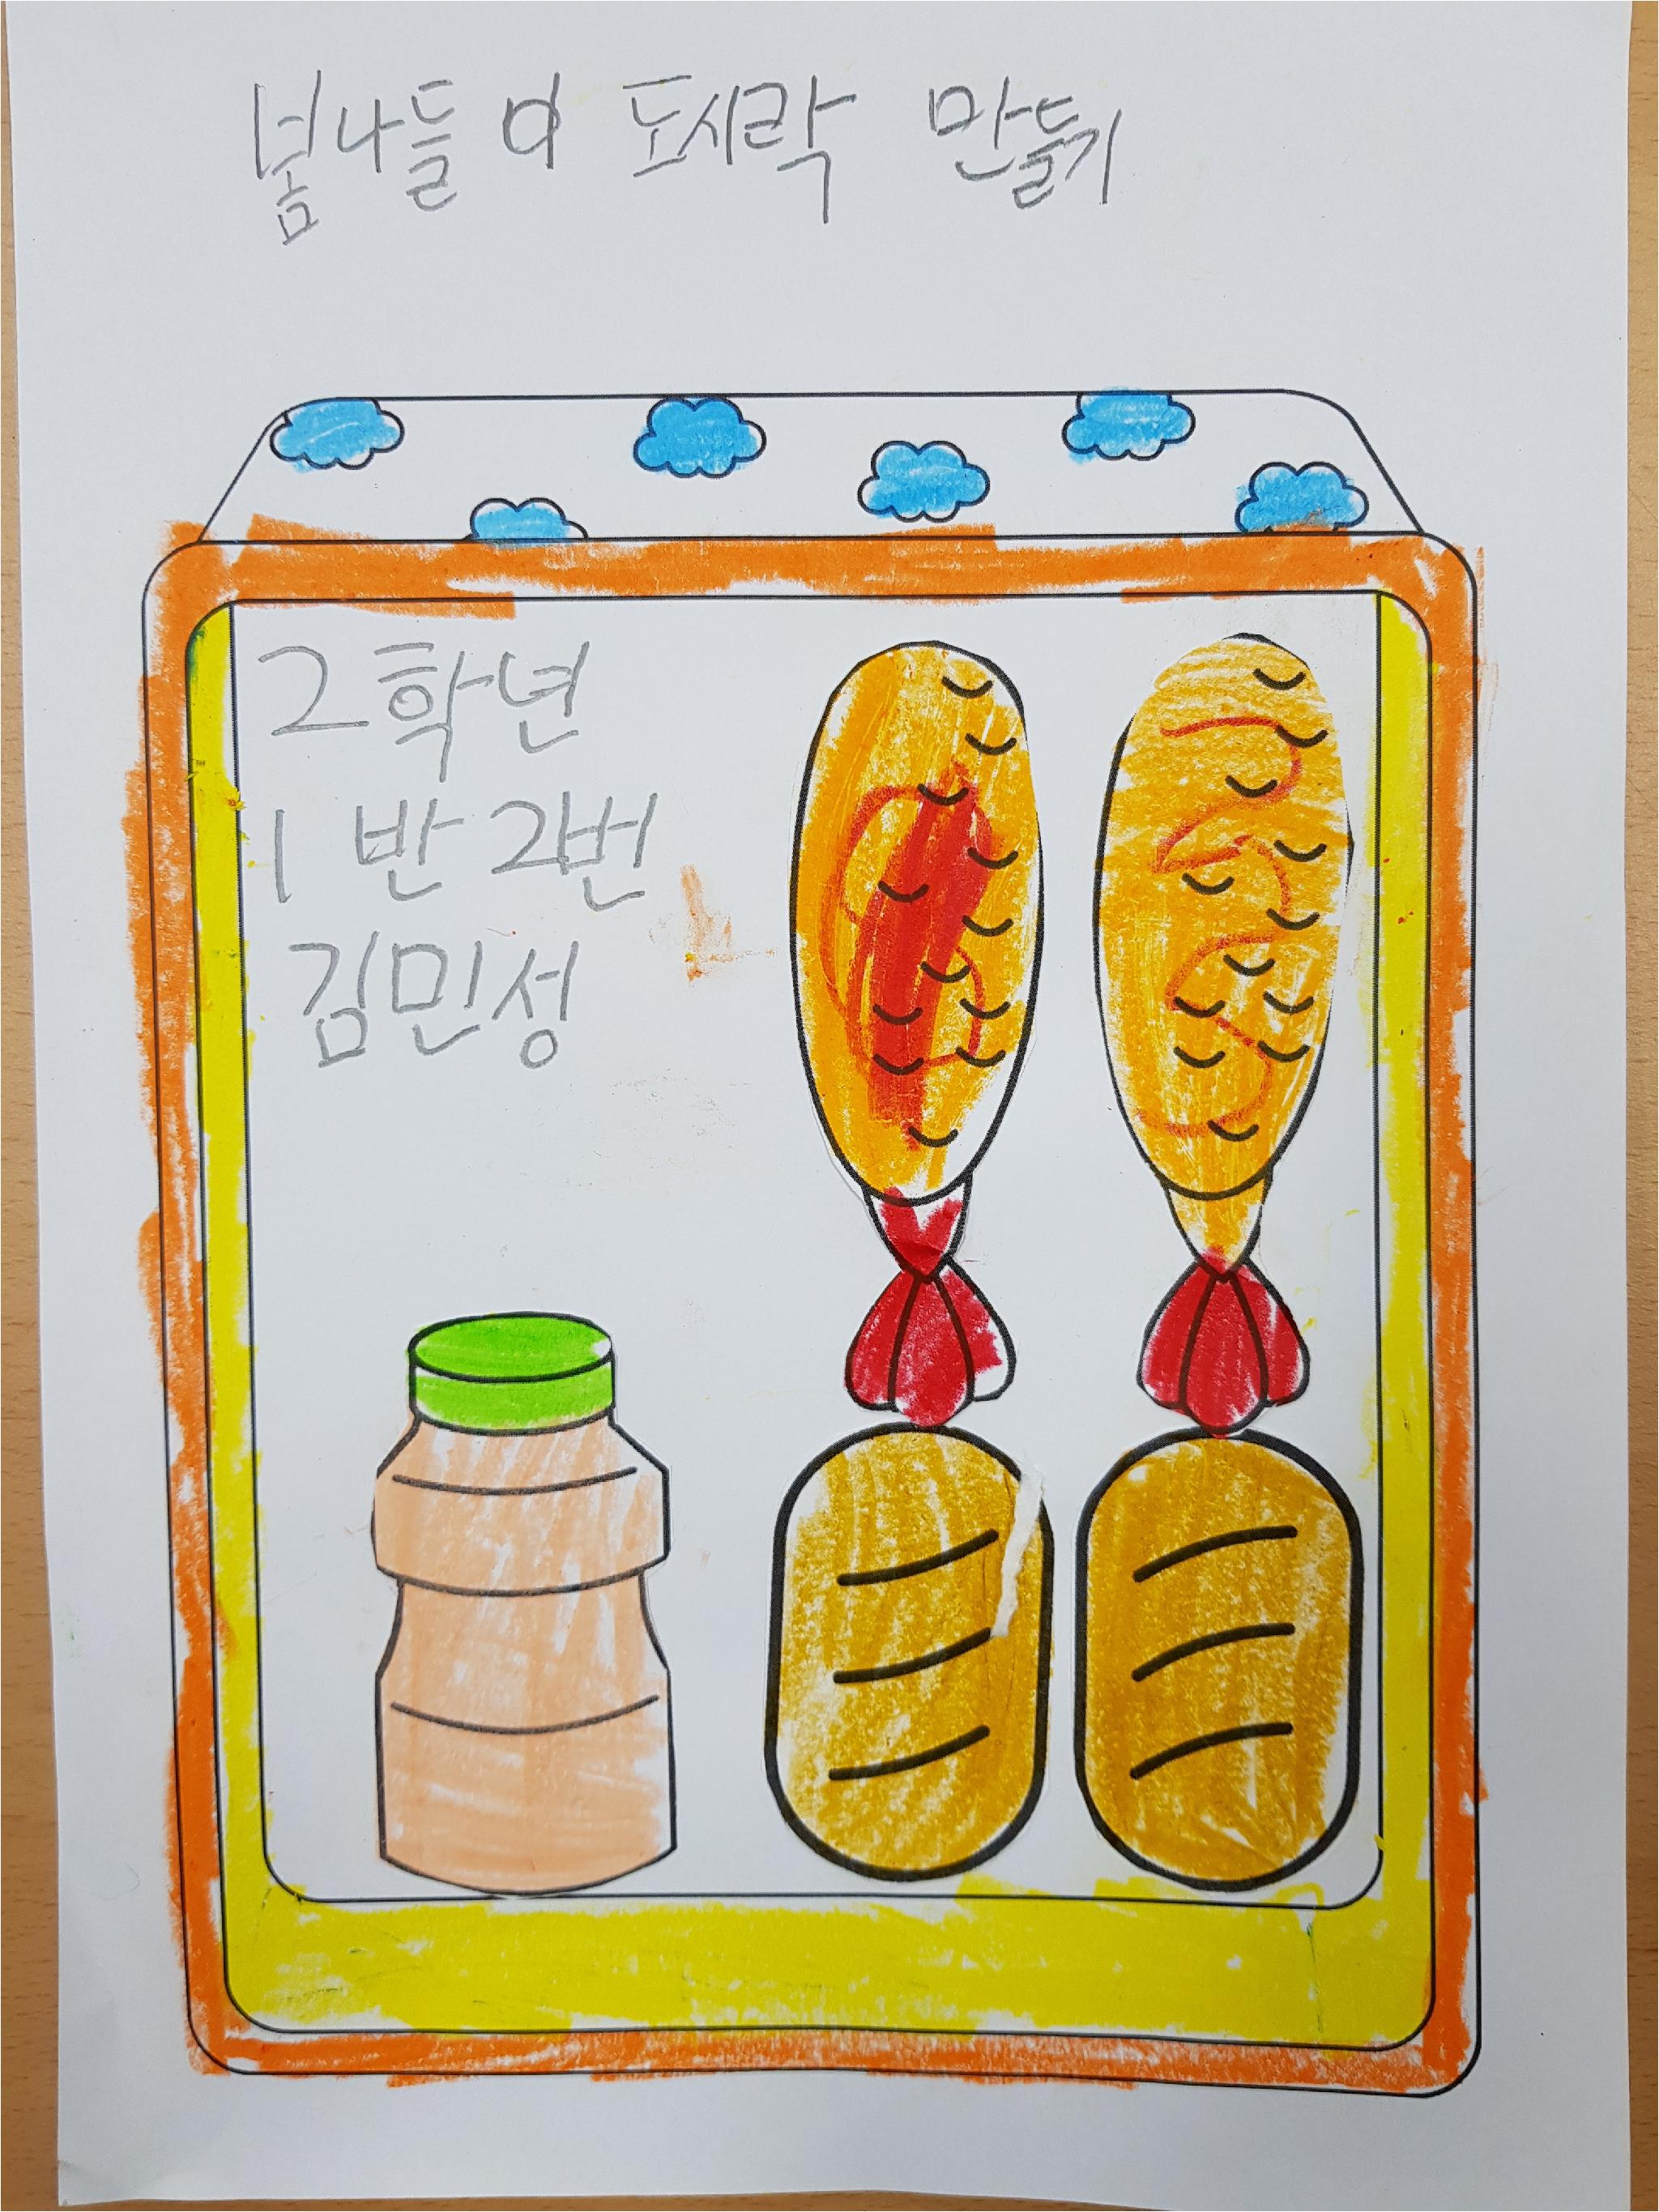 봄나들이 도시락 만들기
2학년
1반 2번
김민성